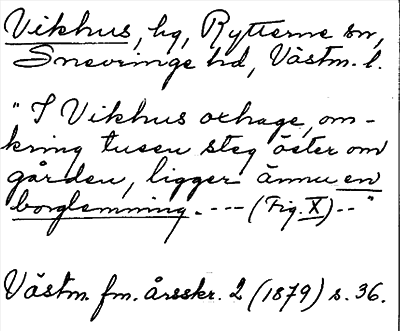 Vikhus, hg, Rytterne sn,
Snevringe hd, Västm. l.
"I Vikhus oxhage, om-
kring tusen steg öster om
gården, ligger ännu en
borglemning. --- (Fig. X) --"
Västm. fm. årsskr. 2 (1879) s. 36.